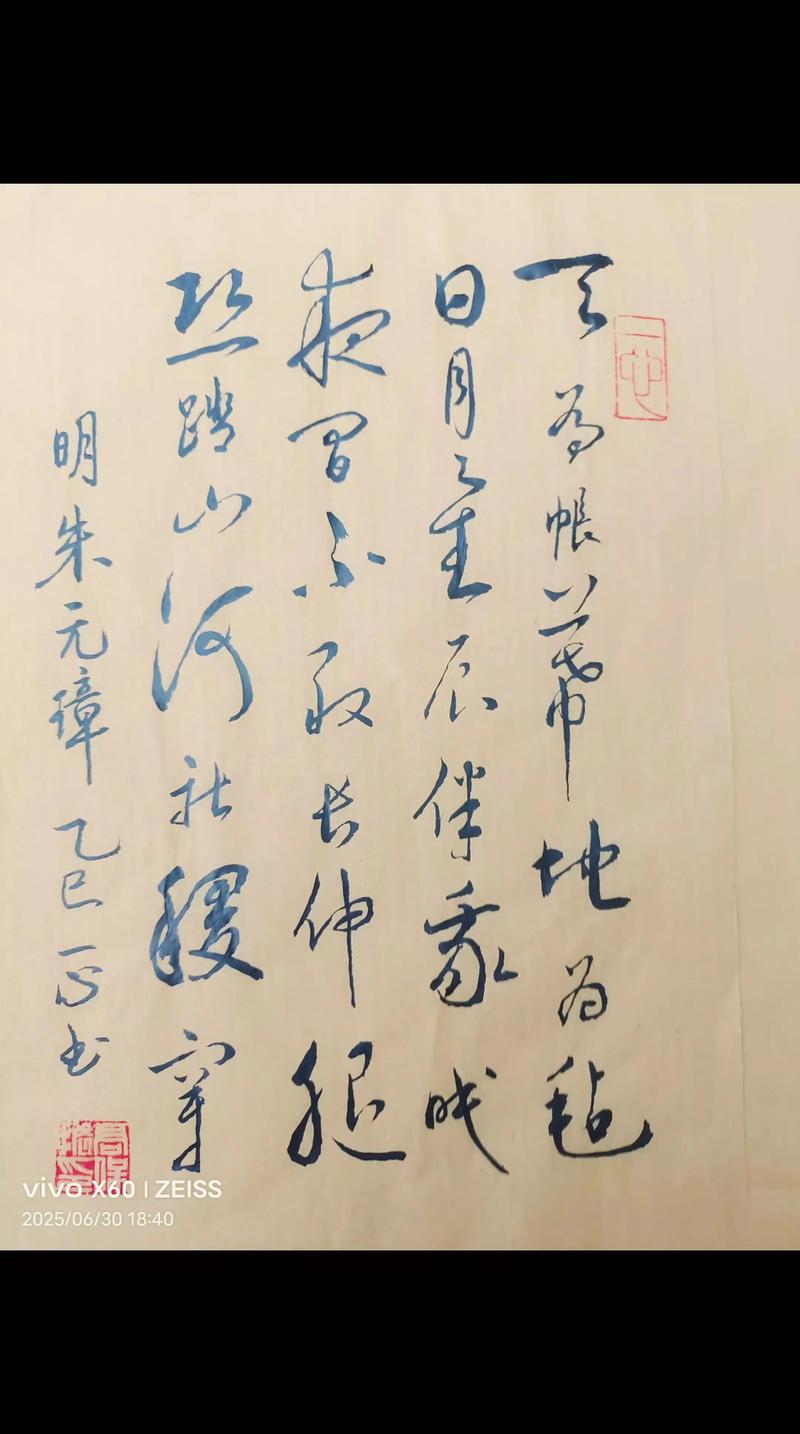 天為帳幕地为毡
日月之星辰伴我眠
夜间不敢长伸腿
恐踏山河社稷穿
明朱元璋乙巳一心书
vivo X60 | ZEISS
2025/06/30 18:40